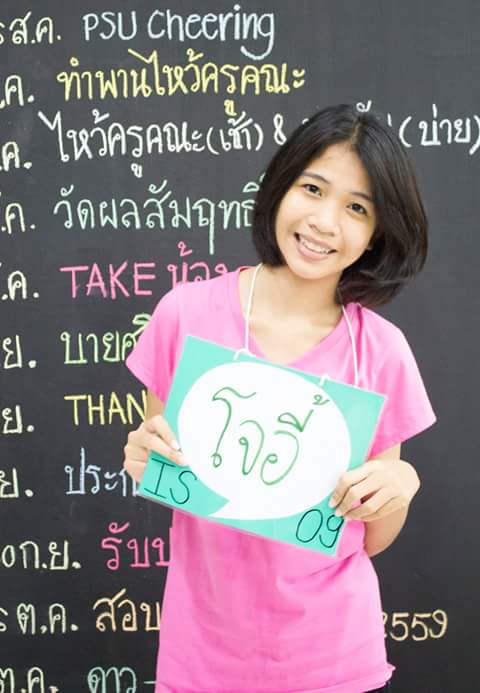 ส.ค. PSU Cheering
ค. ทำพานไหว้ครูคณะ
ค. ไหว้ครูคณะ(เช้า) & (บ่าย)
ค. วัดผลสัมฤทธิ์
ค. TAKE น้อง
ย. บายศรี
ย. THAN
ย. ประก
0ก.ย. รับบ
ต.ค. สอบ 2559
ต.ค. ดาว-
โจอี้
IS 09